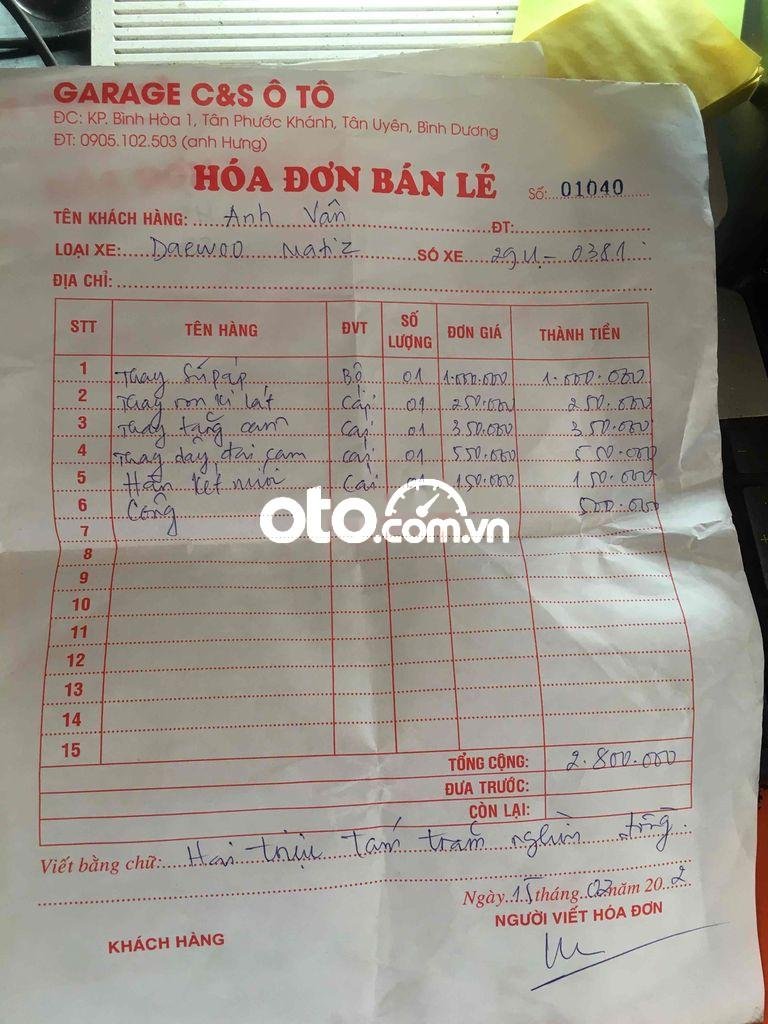 GARAGE C&S Ô TÔ
ĐC: KP. Bình Hòa 1, Tân Phước Khánh, Tân Uyên, Bình Dương
ĐT: 0905.102.503 (anh Hưng)
HÓA ĐƠN BÁN LẺ Số: 01040
TÊN KHÁCH HÀNG: Anh Vân ĐT:
LOẠI XE: Daewoo Matiz SỐ XE 29U-0381
ĐỊA CHỈ:
STT TÊN HÀNG ĐVT SỐ LƯỢNG ĐƠN GIÁ THÀNH TIỀN
1 Thay Súpáp Bộ 01 1.000.000 1.000.000
2 Thay ron Cái 01 250.000 250.000
3 Thay tăng cam Cái 01 350.000 350.000
4 Thay dây đai cam Cái 01 550.000 550.000
5 Hàn két nước Cái 01 150.000 150.000
6 Công 500.000
7
8
9
10
11
12
13
14
15
TỔNG CỘNG: 2.800.000
ĐƯA TRƯỚC:
CÒN LẠI:
Viết bằng chữ: Hai triệu tám trăm nghìn đồng.
Ngày 15 tháng 02 năm 20 2
NGƯỜI VIẾT HÓA ĐƠN
KHÁCH HÀNG
oto.com.vn